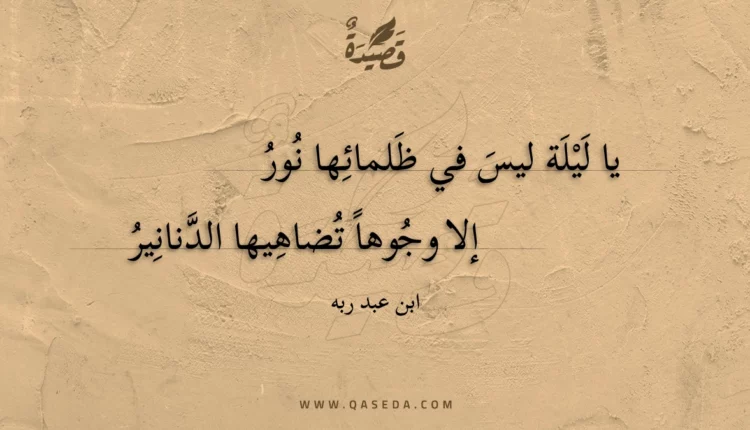 قَصِيْدَةٌ
يا لَيْلَة ليسَ في ظَلمائِها نُورُ
إلا وجُوهاً تُضاهِيها الدَّنانِيرُ
ابن عبد ربه
WWW.QASEDA.COM